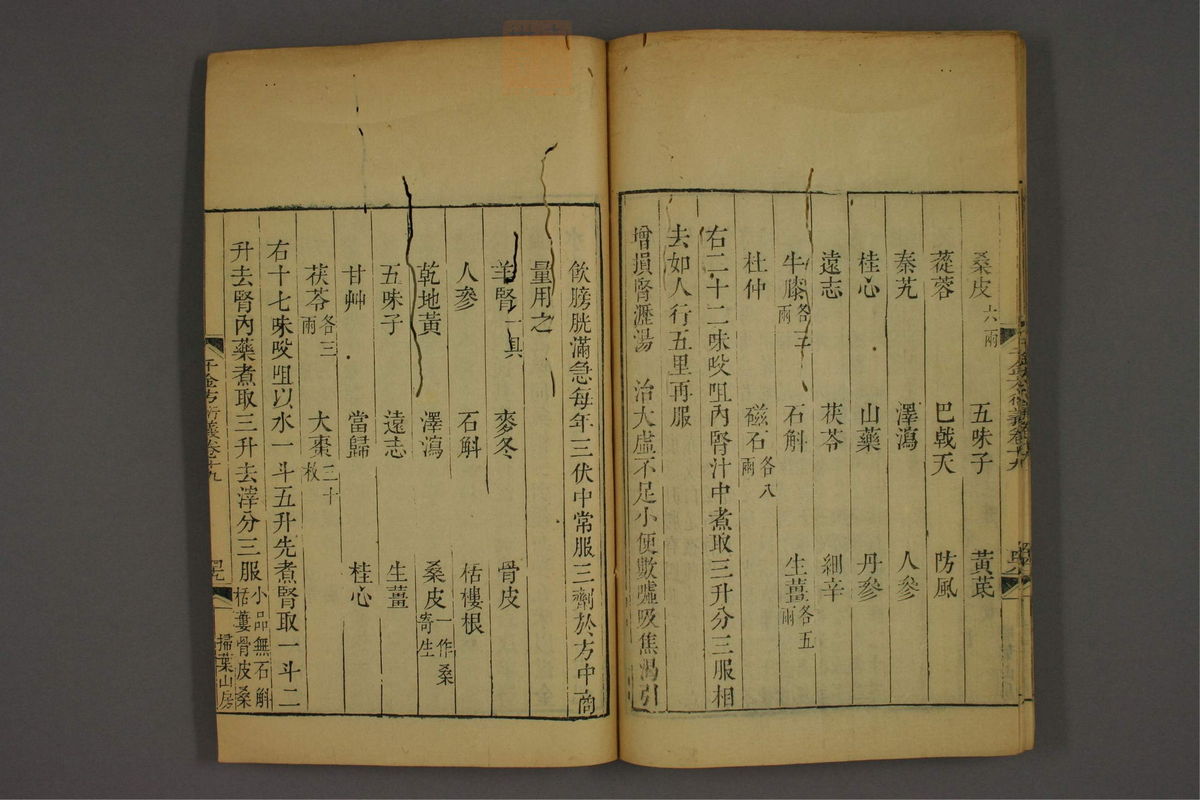 桑皮六兩 五味子 黃芪
蓯蓉 巴戟天 防風
秦艽 澤瀉 人參
桂心 山藥 丹參
遠志 茯苓 細辛
牛膝各三兩 石斛 生薑各五兩
杜仲 磁石各八兩
右二十二味㕮咀內腎汁中煮取三升分三服相
去如人行五里再服
增損腎瀝湯 治大虛不足小便數噓吸焦渴引
飲膀胱滿急每年三伏中常服三劑於方中商
量用之
羊腎一具 麥冬 骨皮
人參 石斛 栝樓根
乾地黃 澤瀉 桑皮一作桑寄生
五味子 遠志 生薑
甘艸 當歸 桂心
茯苓各三兩 大棗三十枚
右十七味㕮咀以水一斗五升先煮腎取一斗二
升去腎內藥煮取三升去滓分三服小品無石斛栝蔞骨皮桑
千金方衍義卷十九 罕九 掃葉山房